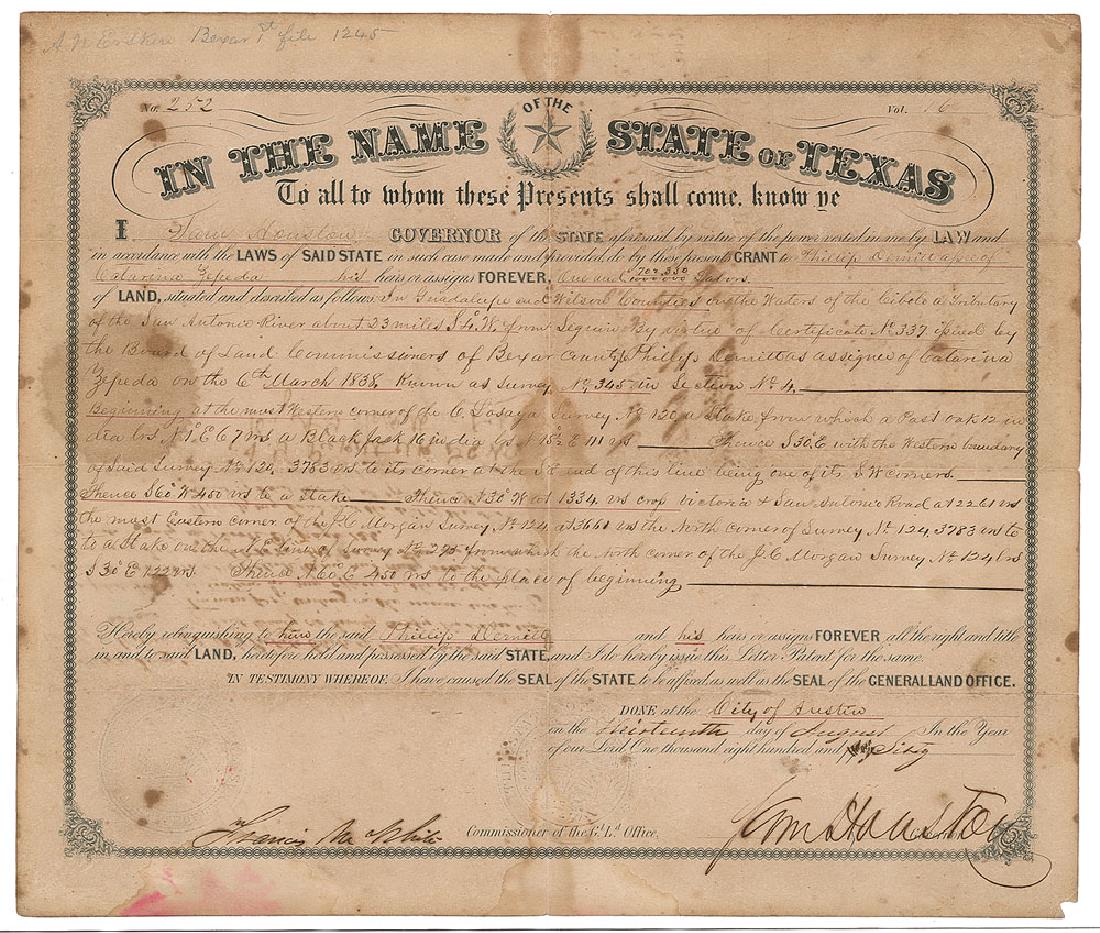 A N Erskine Bexar 1st file 1245
No. 252
Vol. 16
OF THE
IN THE NAME STATE OF TEXAS
To all to whom these Presents shall come, know ye
I Sam Houston GOVERNOR of the STATE aforesaid by virtue of the power vested in me by LAW and
in accordance with the LAWS of SAID STATE in such case made and provided, do by these presents GRANT to Phillip Demitt assee of
Catarina Zepeda his heirs or assigns FOREVER, One and 702,330/1000,000 Labors
of LAND, situated and described as follows: In Guadalupe and Wilson Counties on the Waters of the Cibolo a tributary
of the San Antonio River about 23 miles S 40 W. from Seguin By virtue of Certificate No 337 issued by
the Board of Land Commissioners of Bexar County to Phillip Demitt as assignee of Catarina
Zepeda on the 6th March 1838. Known as Survey No 345 in Section No 4.
Beginning at the most Western corner of the C. Losaya Survey No 120 a stake from which a Post oak 12 in
dia brs N 1° E 67 vrs a Black Jack 16 in dia bs N 15½ E 111 vrs Thence S 30 E with the Western boundary
of said Survey No 120, 3783 vrs to its corner at the S end of this line being one of its S.W. corners.
Thence S 60° W 450 vrs to a stake Thence N 30° W at 1334 vrs crop Victoria & San Antonio Road, at 2261 vrs
the most Eastern corner of the J.C. Morgan Survey No 124 at 3661 vrs the North corner of Survey No 124, 3783 vrs to
to a stake on the line of Survey No 295 from which the north corner of the J.C. Morgan Survey No 124 brs
S 30° E 122 vrs. Thence N 60° E 450 vrs to the place of beginning
Hereby relinquishing to him the said Phillip Demitt and his heirs or assigns FOREVER all the right and title
in and to said LAND, heretofore held and possessed by the said STATE, and I do hereby issue this Letter Patent for the same.
IN TESTIMONY WHEREOF I have caused the SEAL of the STATE to be affixed, as well as the SEAL of the GENERAL LAND OFFICE.
DONE at the City of Austin
on the thirteenth day of August In the Year
of our Lord One thousand eight hundred and Sixty
Francis M White Commissioner of the Gl. Ld. Office. Sam Houston